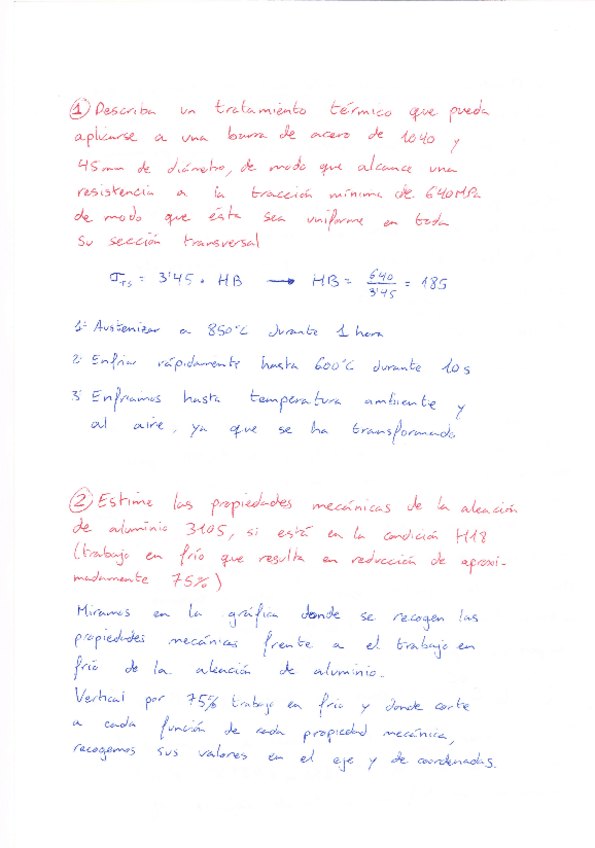 ① Describa un tratamiento térmico que pueda
aplicarse a una barra de acero de 1040 y
45mm de diámetro, de modo que alcance una
resistencia a la tracción mínima de 640MPa
de modo que ésta sea uniforme en toda
su sección transversal
σTS = 3'45 · HB → HB = 640/3'45 = 185
1º Austenizar a 850°C durante 1 hora
2º Enfriar rápidamente hasta 600°C durante 10s
3º Enfriamos hasta temperatura ambiente y
al aire, ya que se ha transformado
② Estime las propiedades mecánicas de la aleación
de aluminio 3105, si está en la condición H18
(trabajo en frío que resulta en reducción de aproxi-
madamente 75%)
Miramos en la gráfica donde se recogen las
propiedades mecánicas frente a el trabajo en
frío de la aleación de aluminio.
Vertical por 75% trabajo en frío y donde corte
a cada función de cada propiedad mecánica,
recogemos sus valores en el eje y de coordenadas.